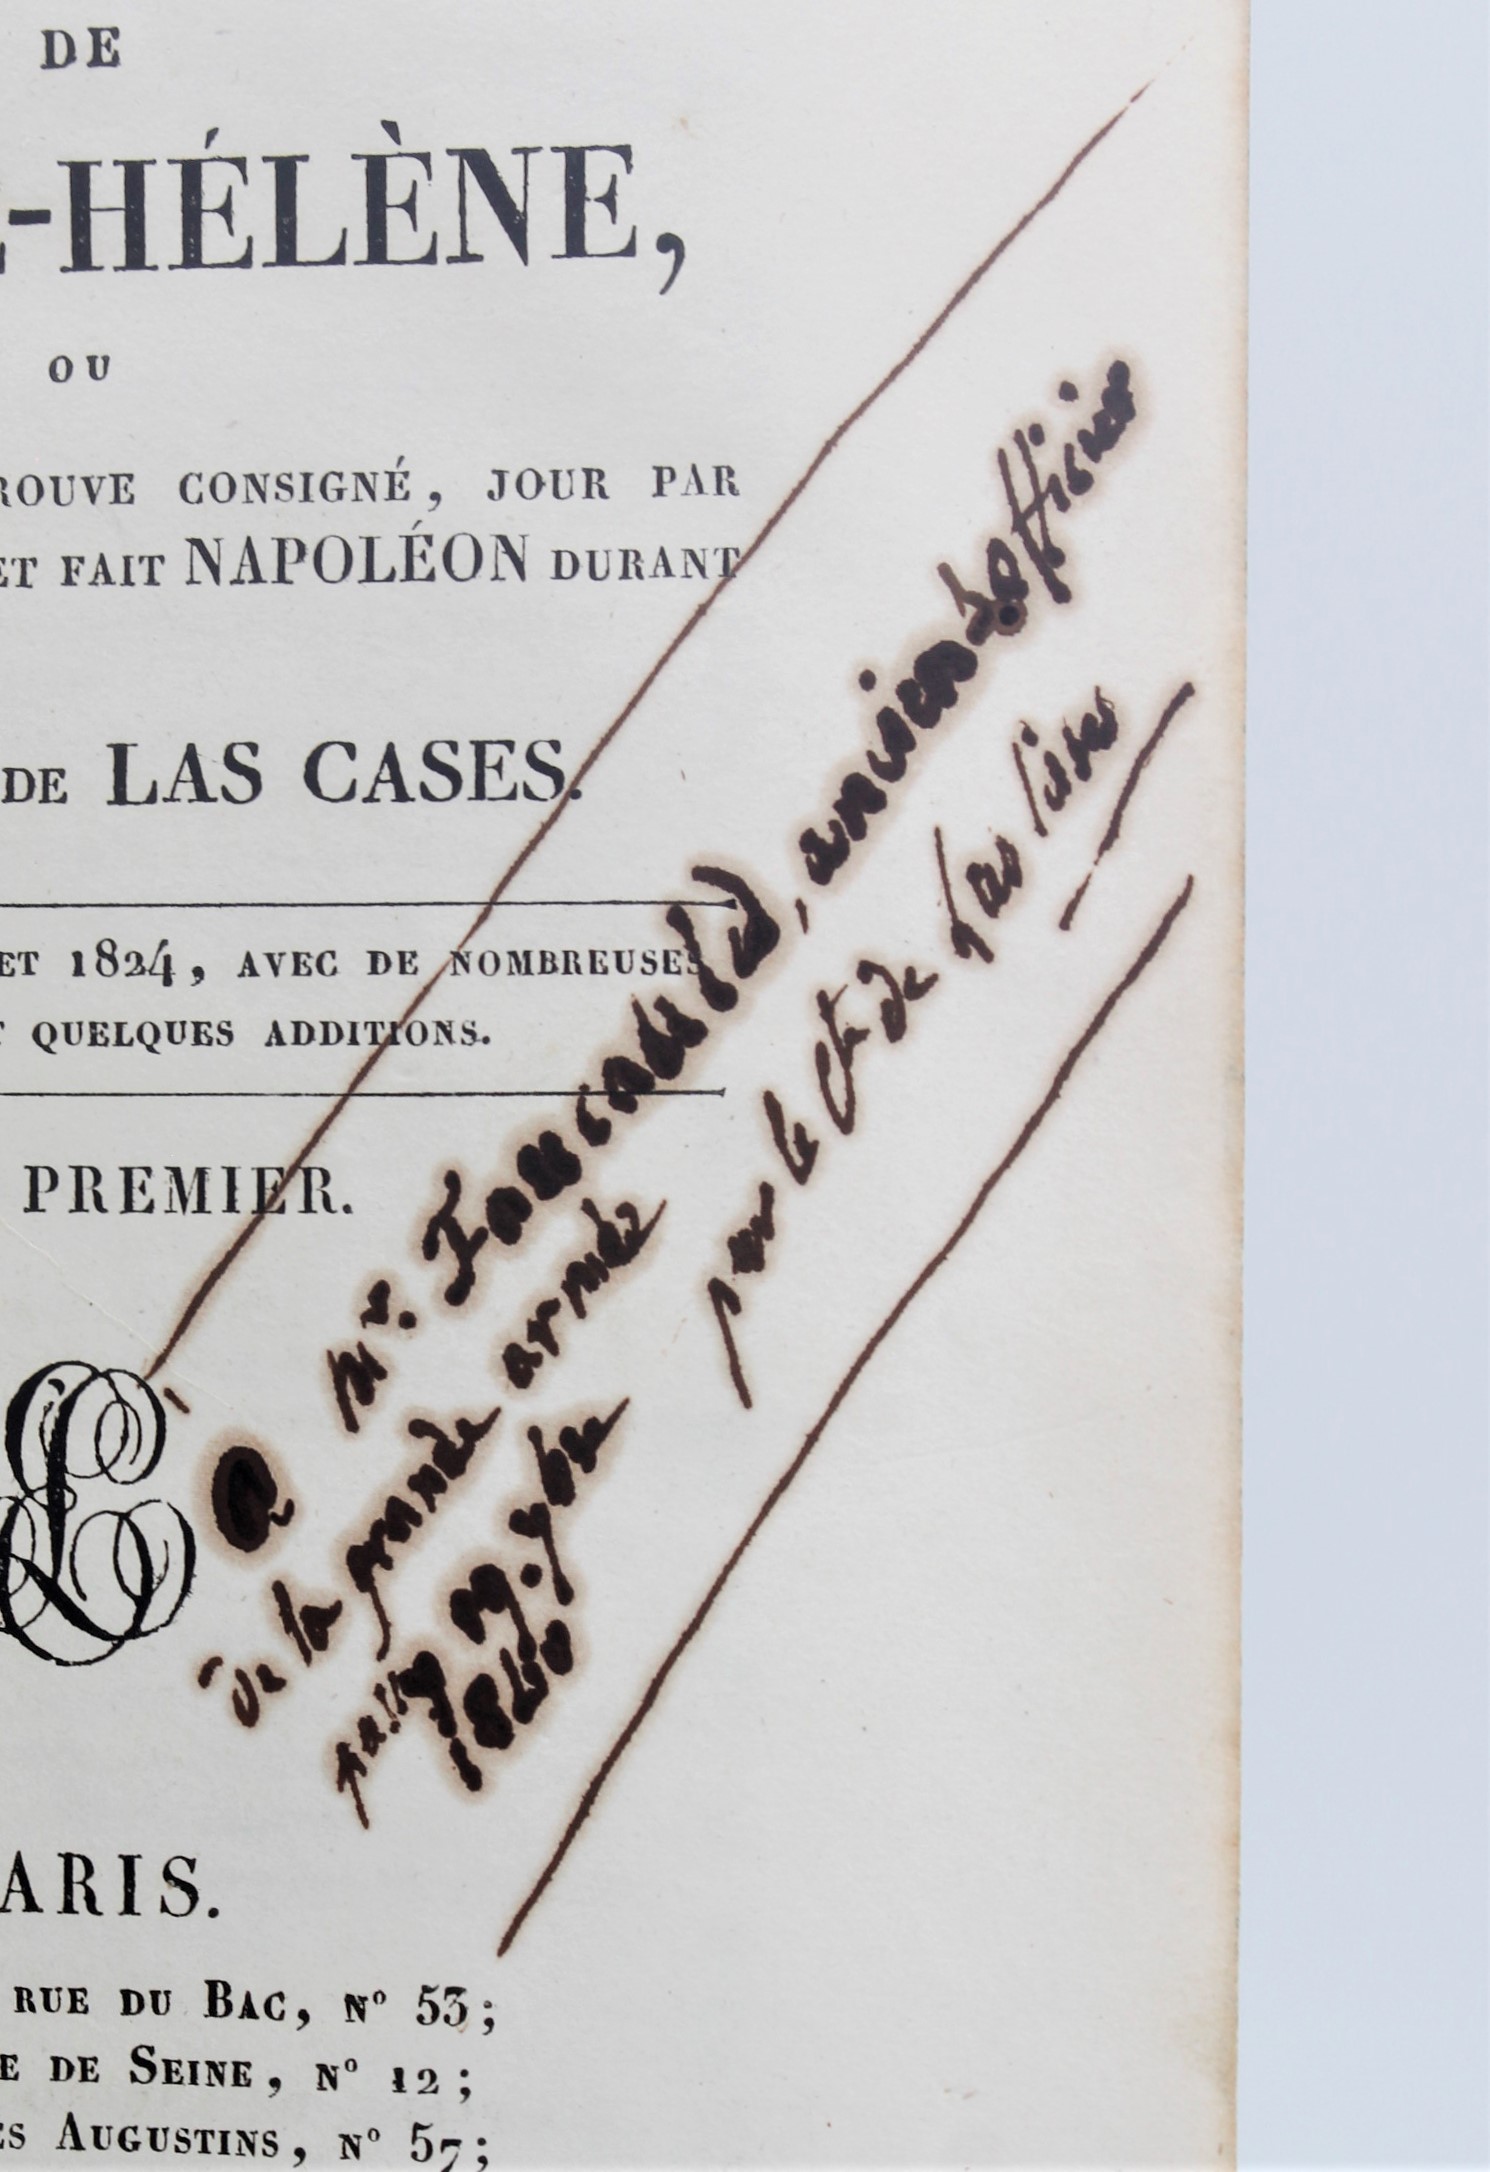 DE
-HÉLÈNE,
OU
ROUVE CONSIGNÉ, JOUR PAR
ET FAIT NAPOLÉON DURANT
DE LAS CASES.
ET 1824, AVEC DE NOMBREUSES
QUELQUES ADDITIONS.
PREMIER.
a Mr. , ancien officier
de la grande armée
par le Cte de Las Cases
passy 9bre
1840
ARIS.
RUE DU BAC, N° 53;
E DE SEINE, N° 12;
ES AUGUSTINS, N° 57;